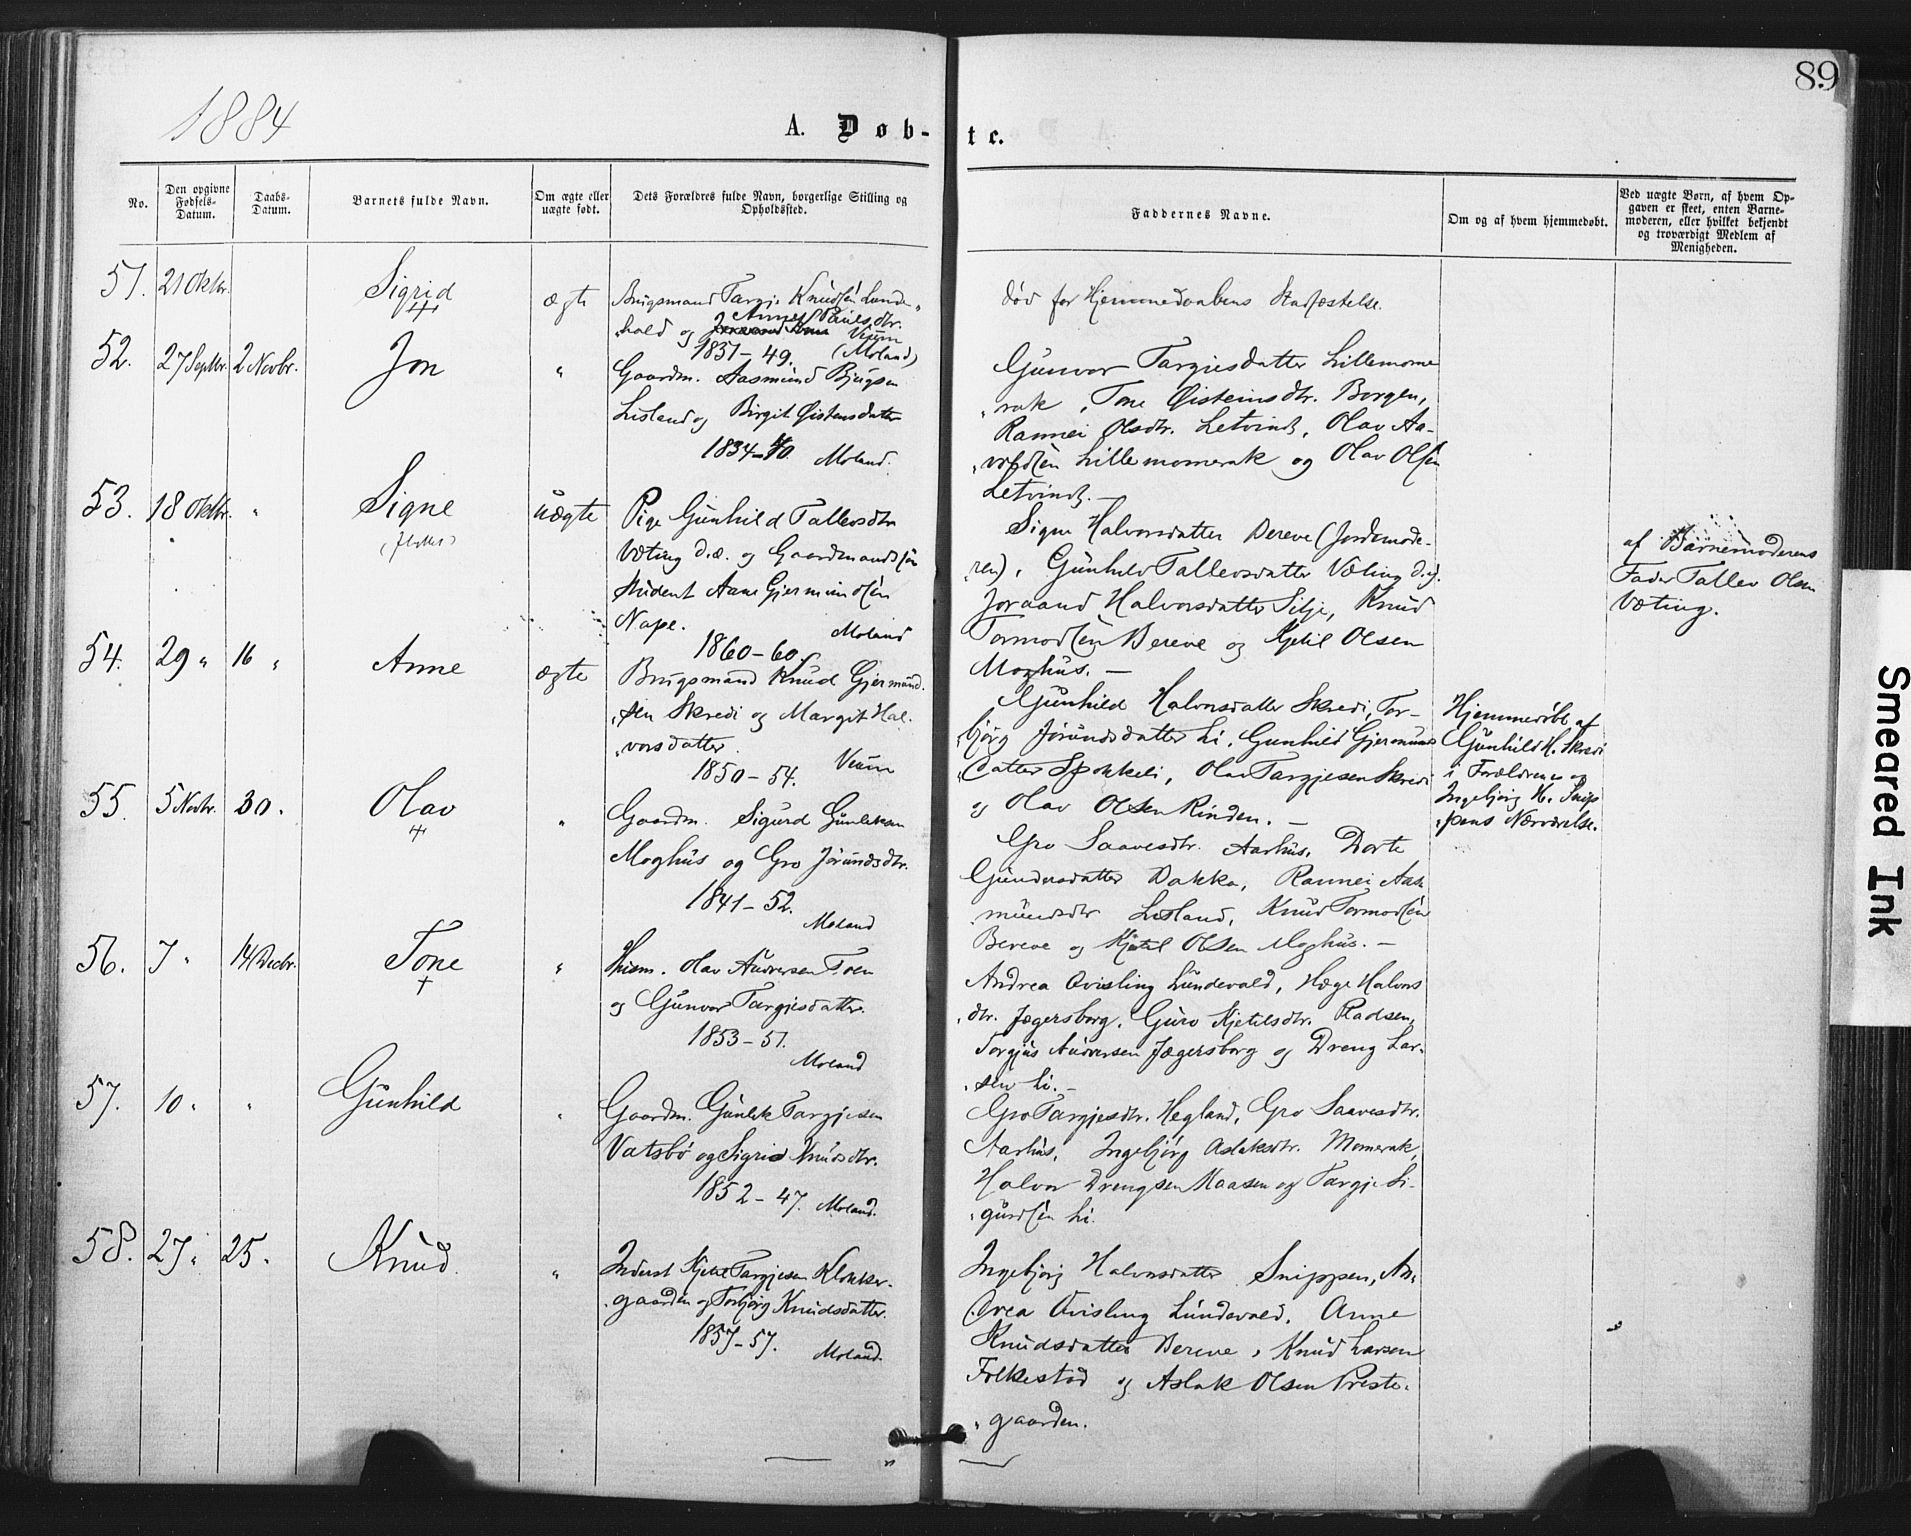 89
1884
A. Døb-
te.
No.
Den opgivne Fødsels-Datum.
Daabs-Datum.
Barnets fulde Navn.
Om ægte eller uægte født.
Dets Forældres fulde Navn, borgerlige Stilling og Opholdssted.
Faddernes Navne.
Om og af hvem hjemmedøbt.
Ved uægte Børn, af hvem Op-
gaven er skeet, enten Barne-
moderen, eller hvilket bekjendt
og troværdigt Medlem af
Menigheden.
51. 21 Oktbr. Sigrid ægte
Brugsmand Targje Knudsen Lunde-
vald og Anne Pauls dtr.
Veum
1831-49. (Moland)
død før Hjemmedaabens Stadfæstelse.
52. 27 Septbr. 2 Novbr. Jon "
Gaardm. Aasmund Bjugsen
Lisland og Birgit Øistensdatter
1834-40. Moland.
Gunvor Targiesdatter Lillemome
"rak, Tone Øisteinsdtr. Borgen,
Rannei Olsdtr. Letvindt, Olav Aa-
"voldsen Lillemomerak og Olav Olsen
Letvindt. -
53. 18 Oktbr. " Signe uægte
Pige Gunhild Tallevsdtr
Væting d.æ. og Gaardmandssøn
Student Aane Gjermundsen
Nape. Moland
1860-60
Signe Halvorsdatter Bereve (Jordemode-
ren), Gunhild Tallevsdatter Væting d.y.
Joraand Halvorsdatter Silje, Knud
Tormodsen Bereve og Kjetil Olsen
Moghus. -
af Barnemoderens
Fader Tallev Olsen
Væting.
54. 29 " 16 " Anne ægte
Brugsmand Knud Gjermund-
"sen Skredi og Margit Hal-
"vorsdatter. Veum
1850-54.
Gunhild Halvorsdatter Skredi, Tor-
bjørg Jørundsdatter Li, Gunhild Gjermunds
"datter Spokkeli, Olav Targjesen Skredi
og Olav Olsen Rinden. -
Hjemmedøbt af
Gunhild H. Skredi
i Forældrenes og
Ingebjørg H. Snip
"pens Nærværelse.
55. 5 Novbr. 30. Olav "
Gaardm. Sigurd Gunleiksen
Moghus og Gro Jørundsdtr.
1841-52.
Moland
Gro Saavesdtr. Aarhus, Dorte
Gundersdatter Dakka, Rannei Aas-
mundsdtr Lisland, Knud Tormodsen
Bereve og Kjetil Olsen Moghus. -
56. 7 " 14 Decbr. Tone "
Husm. Olav Audversen Toen
og Gunvor Targjesdatter.
1853-51.
Moland
Andrea Qvisling Lundevald, Hæge Halvors
"dtr. Jægersborg, Guro Kjetilsdtr. Pladsen,
Torgjus Audversen Jægersborg og Dreng Lar-
"sen Li. -
57. 10 " " Gunhild "
Gaardm. Gunleik Targjesen
Vatsbø og Sigrid Knudsdtr.
1852-47. Moland.
Gro Targjesdtr. Hegland, Gro Saavesdtr.
Aarhus, Ingebjørg Aslaksdtr. Momerak,
Halvor Drengsen Maasen og Targje Si-
"gurdsen Li.
58. 27 " 25. Knud. "
Inderst Kjetil Targjesen Klokker-
"gaarden og Torbjørg Knudsdatter.
1857-57.
Moland.
Ingebjørg Halvorsdatter Snippen, An-
drea Qvisling Lundevald, Anne
Knudsdatter Bereve, Knud Larsen
Folkestad og Aslak Olsen Preste-
"gaarden.
Smeared Ink